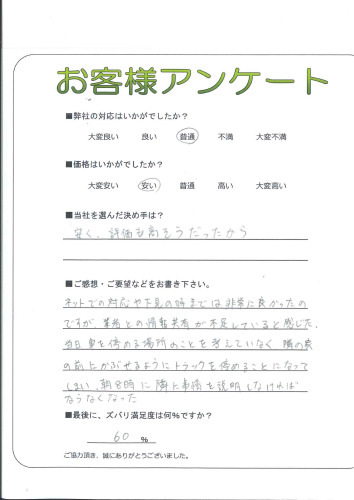 お客様アンケート
■弊社の対応はいかがでしたか?
大変良い 良い 普通 不満 大変不満
■価格はいかがでしたか?
大変安い 安い 普通 高い 大変高い
■当社を選んだ決め手は?
安く、評価も高そうだったから
■ご感想・ご要望などをお書き下さい。
ネットでの対応や下見の時までは非常に良かったの
ですが、業者との情報共有が不足していると感じた。
当日車を停める場所のことを考えていなく 隣の家
の前にかぶせるようにトラックを停めることになって
しまい、朝8時に隣に事情を説明しなければ
ならなくなった
■最後に、ズバリ満足度は何%ですか?
60 %
ご協力頂き、誠にありがとうございました。